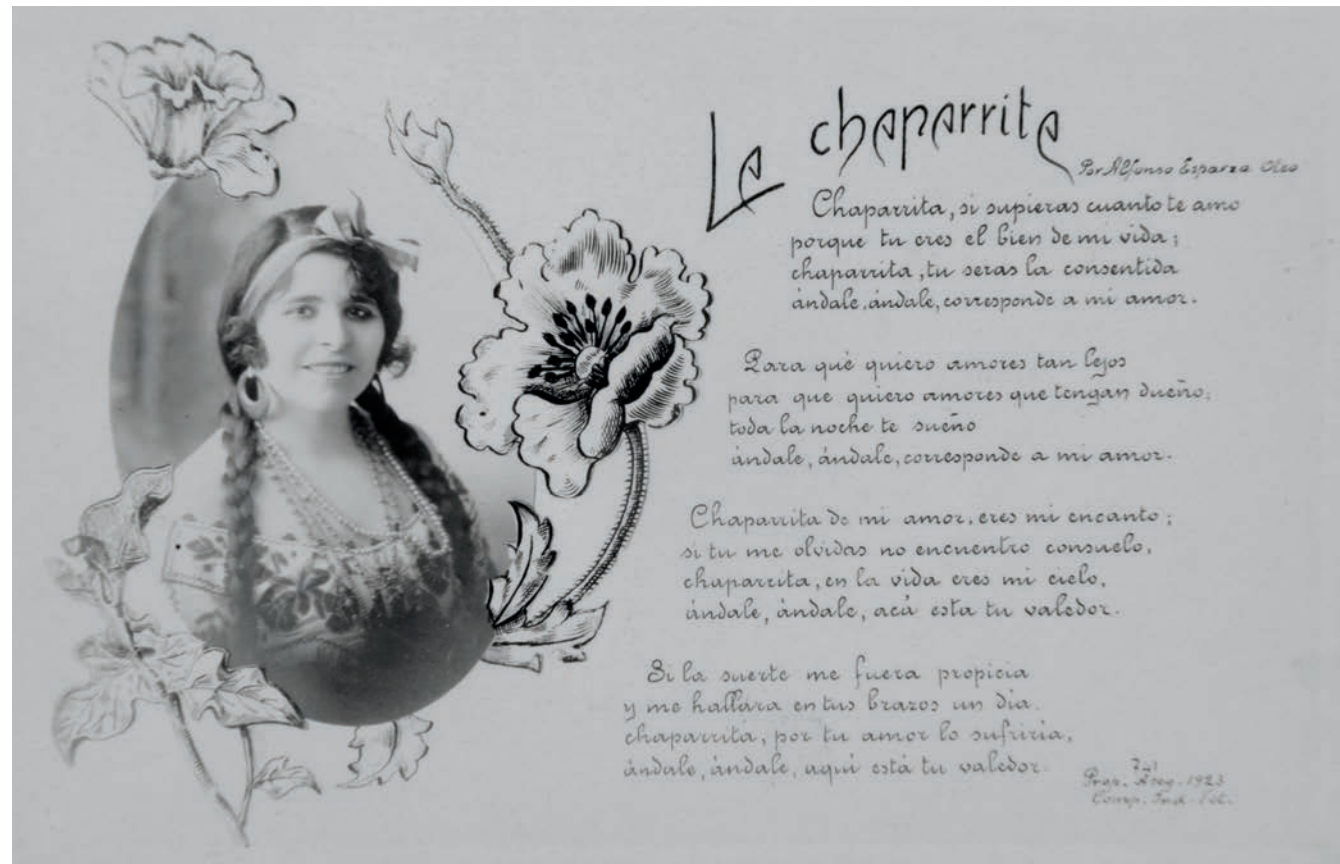 La chaparrita
Por Alfonso Esparza Oteo
Chaparrita, si supieras cuanto te amo
porque tu eres el bien de mi vida;
chaparrita, tu seras la consentida
ándale, ándale, corresponde a mi amor.
Para qué quiero amores tan lejos
para que quiero amores que tengan dueño;
toda la noche te sueño
ándale, ándale, corresponde a mi amor.
Chaparrita de mi amor, eres mi encanto;
si tu me olvidas no encuentro consuelo,
chaparrita, en la vida eres mi cielo,
ándale, ándale, acá esta tu valedor.
Si la suerte me fuera propicia
y me hallára en tus brazos un dia.
chaparrita, por tu amor lo sufriria,
ándale, ándale, aquí está tu valedor.
Prop. Aseg. 1923
Comp. Ind. Fot.